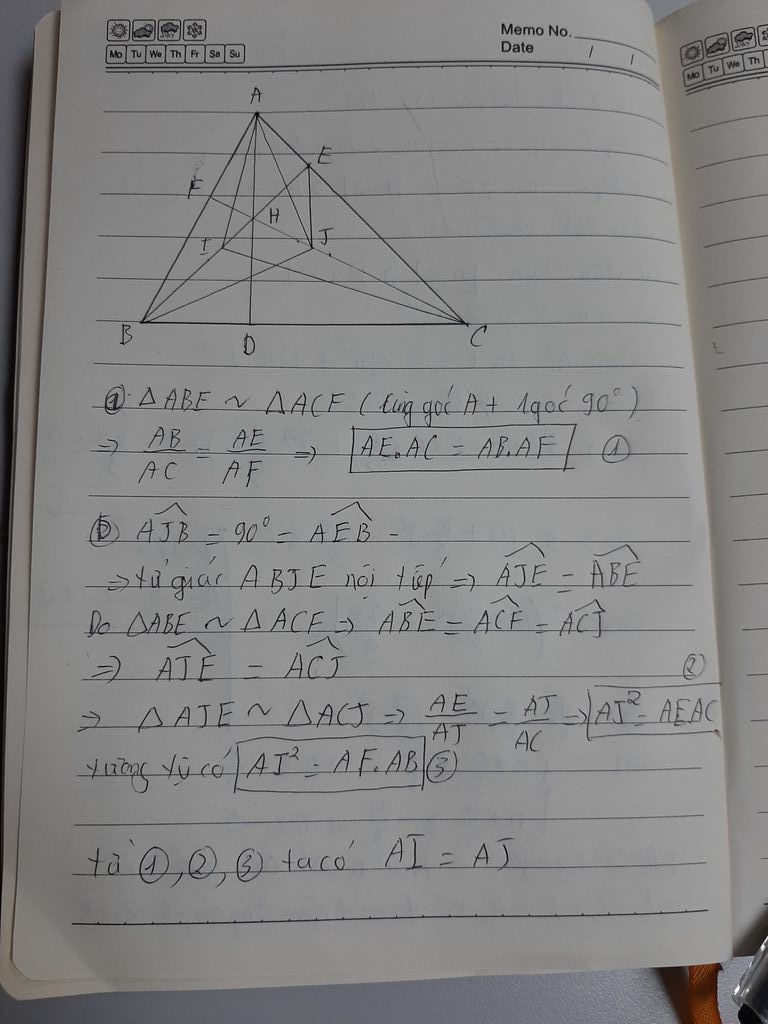 Memo No.
Date / /
Mo Tu We Th Fr Sa Su
Mo Tu We Th
A
E
F
H
I
J
B
D
C
ⓐ ΔABE ~ ΔACF (cùng góc A + 1 góc 90°)
⇒ AB/AC = AE/AF ⇒ AE.AC = AB.AF ①
ⓑ \widehat{AJB} = 90° = \widehat{AEB} -
⇒ tứ giác ABJE nội tiếp ⇒ \widehat{AJE} = \widehat{ABE}
Do ΔABE ~ ΔACF ⇒ \widehat{ABE} = \widehat{ACF} = \widehat{ACJ}
⇒ \widehat{AJE} = \widehat{ACJ} ②
⇒ ΔAJE ~ ΔACJ ⇒ AE/AJ = AJ/AC ⇒ AJ² = AEAC
tương tự có AI² = AF.AB ③
từ ①, ②, ③ ta có AI = AJ